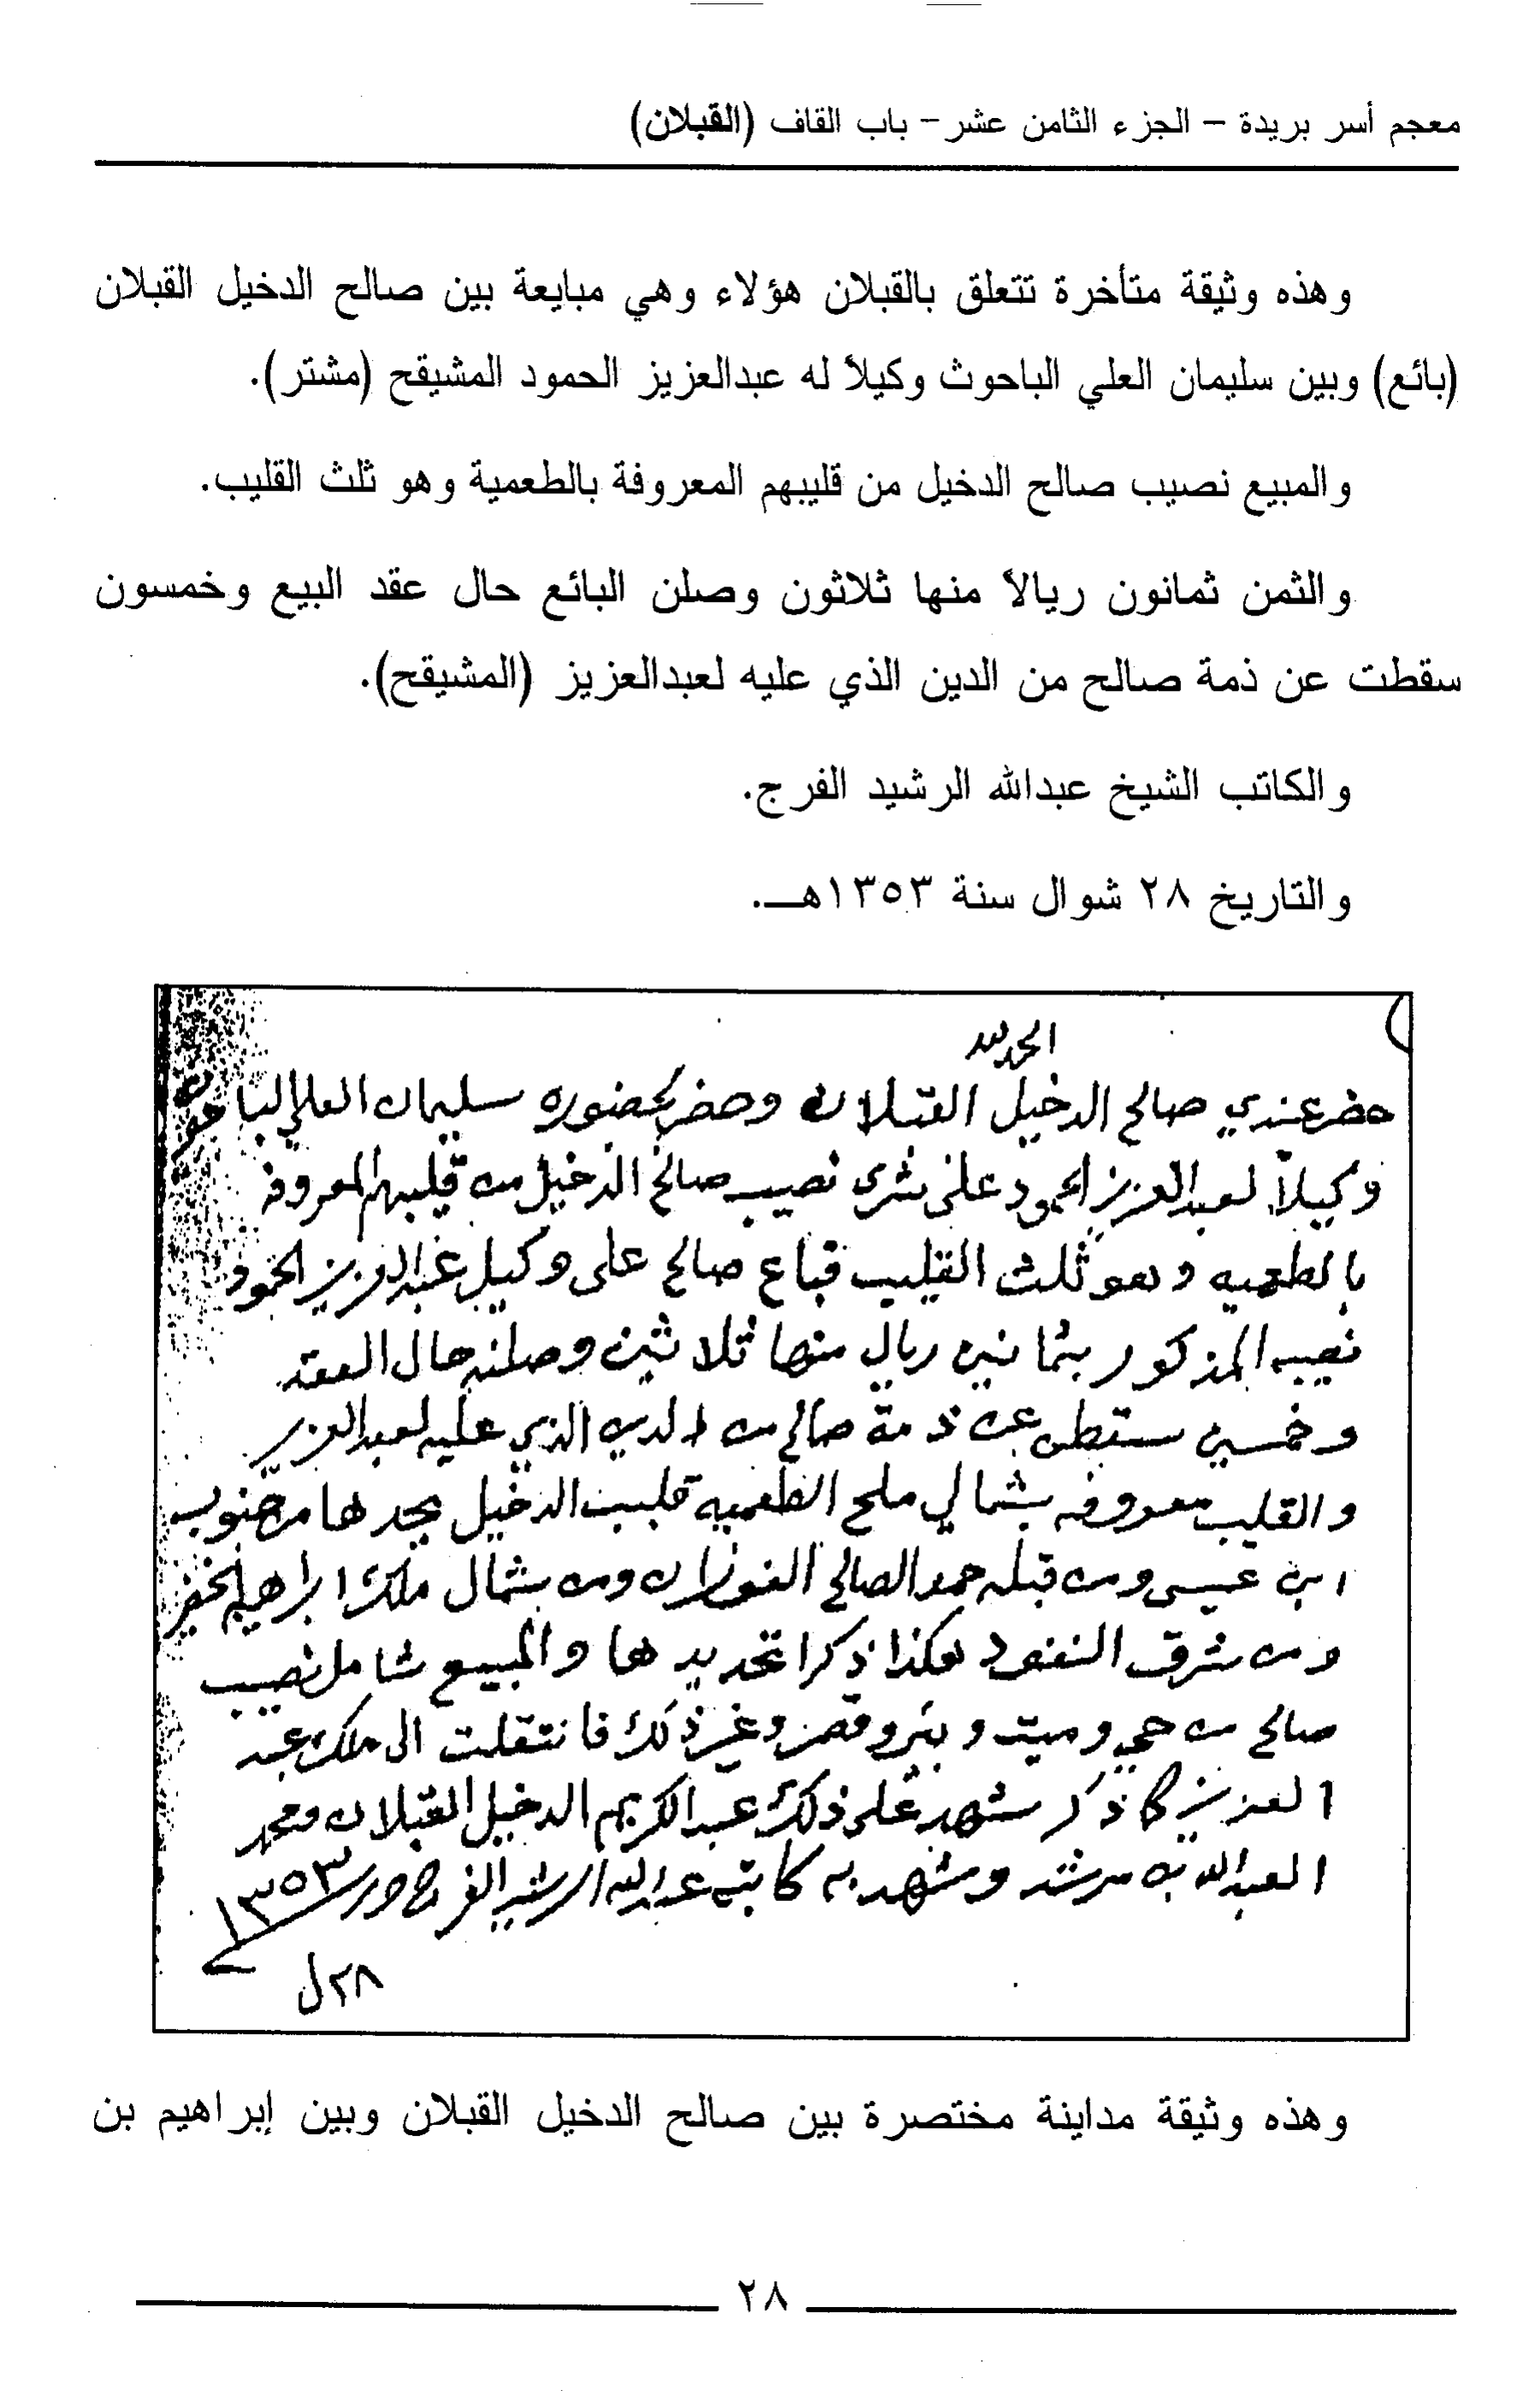 معجم أسر بريدة – الجزء الثامن عشر – باب القاف (القبلان)
وهذه وثيقة متأخرة تتعلق بالقبلان هؤلاء وهي مبايعة بين صالح الدخيل القبلان
(بائع) وبين سليمان العلي الباحوث وكيلاً له عبدالعزيز الحمود المشيقح (مشتر).
والمبيع نصيب صالح الدخيل من قليبهم المعروفة بالطعمية وهو ثلث القليب.
والثمن ثمانون ريالاً منها ثلاثون وصلن البائع حال عقد البيع وخمسون
سقطت عن ذمة صالح من الدين الذي عليه لعبدالعزيز (المشيقح).
والكاتب الشيخ عبدالله الرشيد الفرج.
والتاريخ ٢٨ شوال سنة ١٣٥٣هـ.
الحمد لله
حضر عندي صالح الدخيل القبلان وحضر بحضوره سليمان العلي الباحوث
وكيلاً لعبدالعزيز الحمود على شرى نصيب صالح الدخيل من قليبهم المعروفه
بالطعميه وهو ثلث القليب فباع صالح على وكيل عبدالعزيز الحمود
نصيبه المذكور بثمانين ريال منها ثلاثين وصلنه حال العقد
وخمسين سقطن عن ذمة صالح من الدين الذي عليه لعبدالعزيز
والقليب معروفه بشمالي ملح الطعميه قليب الدخيل يحدها من جنوب
ابن عيسى ومن قبله حمد الصالح الفوزان ومن شمال ملك ابراهيم
ومن شرق النفود هكذا ذكرا تحديدها والمبيع شامل نصيب
صالح من حي وميت وبئر وقصر وغير ذلك فانتقلت الى ملك عبد
العزيز كما ذكر شهد على ذلك عبدالكريم الدخيل القبلان ومحمد
العبدالله بن مرشد وشهد به كاتبه عبدالله الرشيد الفرج ١٣٥٣
٢٨ ل
وهذه وثيقة مداينة مختصرة بين صالح الدخيل القبلان وبين إبراهيم بن
٢٨